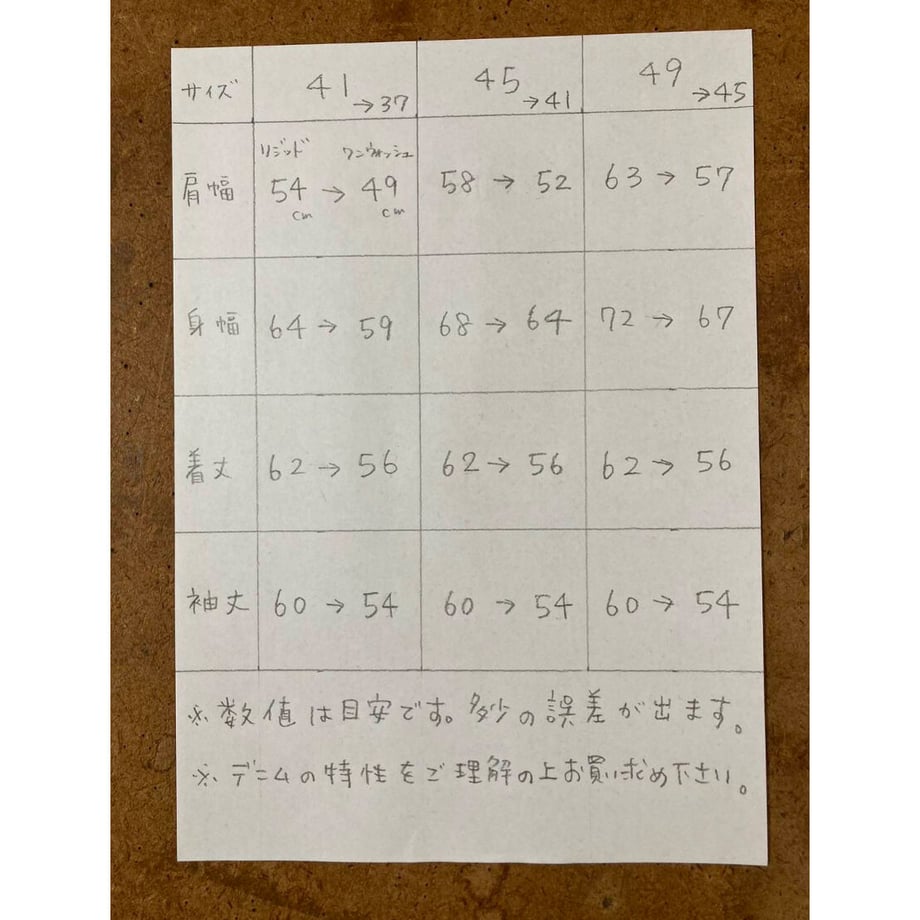 サイズ 41→37 45→41 49→45
リジッド ワンウォッシュ
肩幅 54cm→49cm 58→52 63→57
身幅 64→59 68→64 72→67
着丈 62→56 62→56 62→56
袖丈 60→54 60→54 60→54
※数値は目安です。多少の誤差が出ます。
※デニムの特性をご理解の上お買い求め下さい。